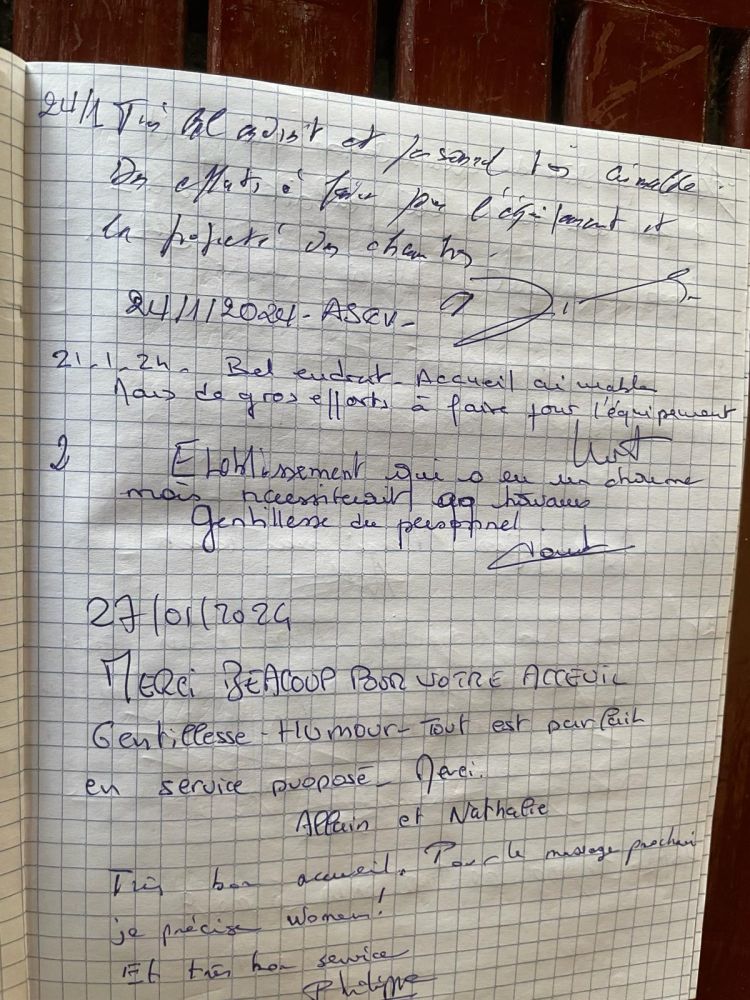 24/1 Très bel endroit et personnel très aimable.
Des efforts à faire pour l'équipement et
la propreté des chambres.
24/1/2024 - ASCV -
21.1.24. Bel endroit - Accueil aimable
Mais de gros efforts à faire pour l'équipement
2 Etablissement qui a eu un charme
mais nécessiterait qq travaux
Gentillesse du personnel
27/01/2024
MERCi BEACOUP POUR VOTRE ACCEUIL
Gentillesse - Humour - Tout est parfait
en service proposé - Merci.
Allain et Nathalie
Très bon accueil. Pour le massage prochain
je précise Women!
Et très bon service
Philippe